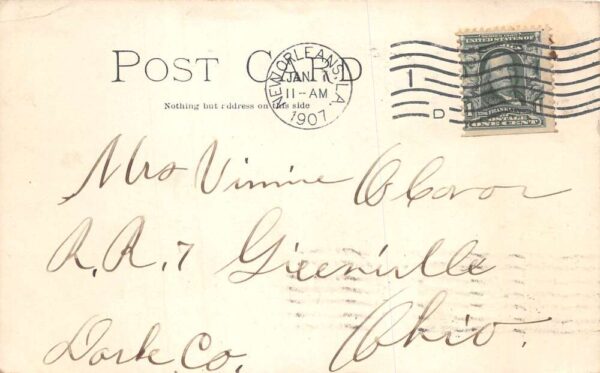 POST CARD
Nothing but address on this side
NEW ORLEANS, LA.
JAN 1
11-AM
1907
1
D
UNITED STATES OF
FRANKLIN
POSTAGE
ONE CENT
Mrs Vinnie
R.R. 7 Greenville
Darke Co. Ohio.